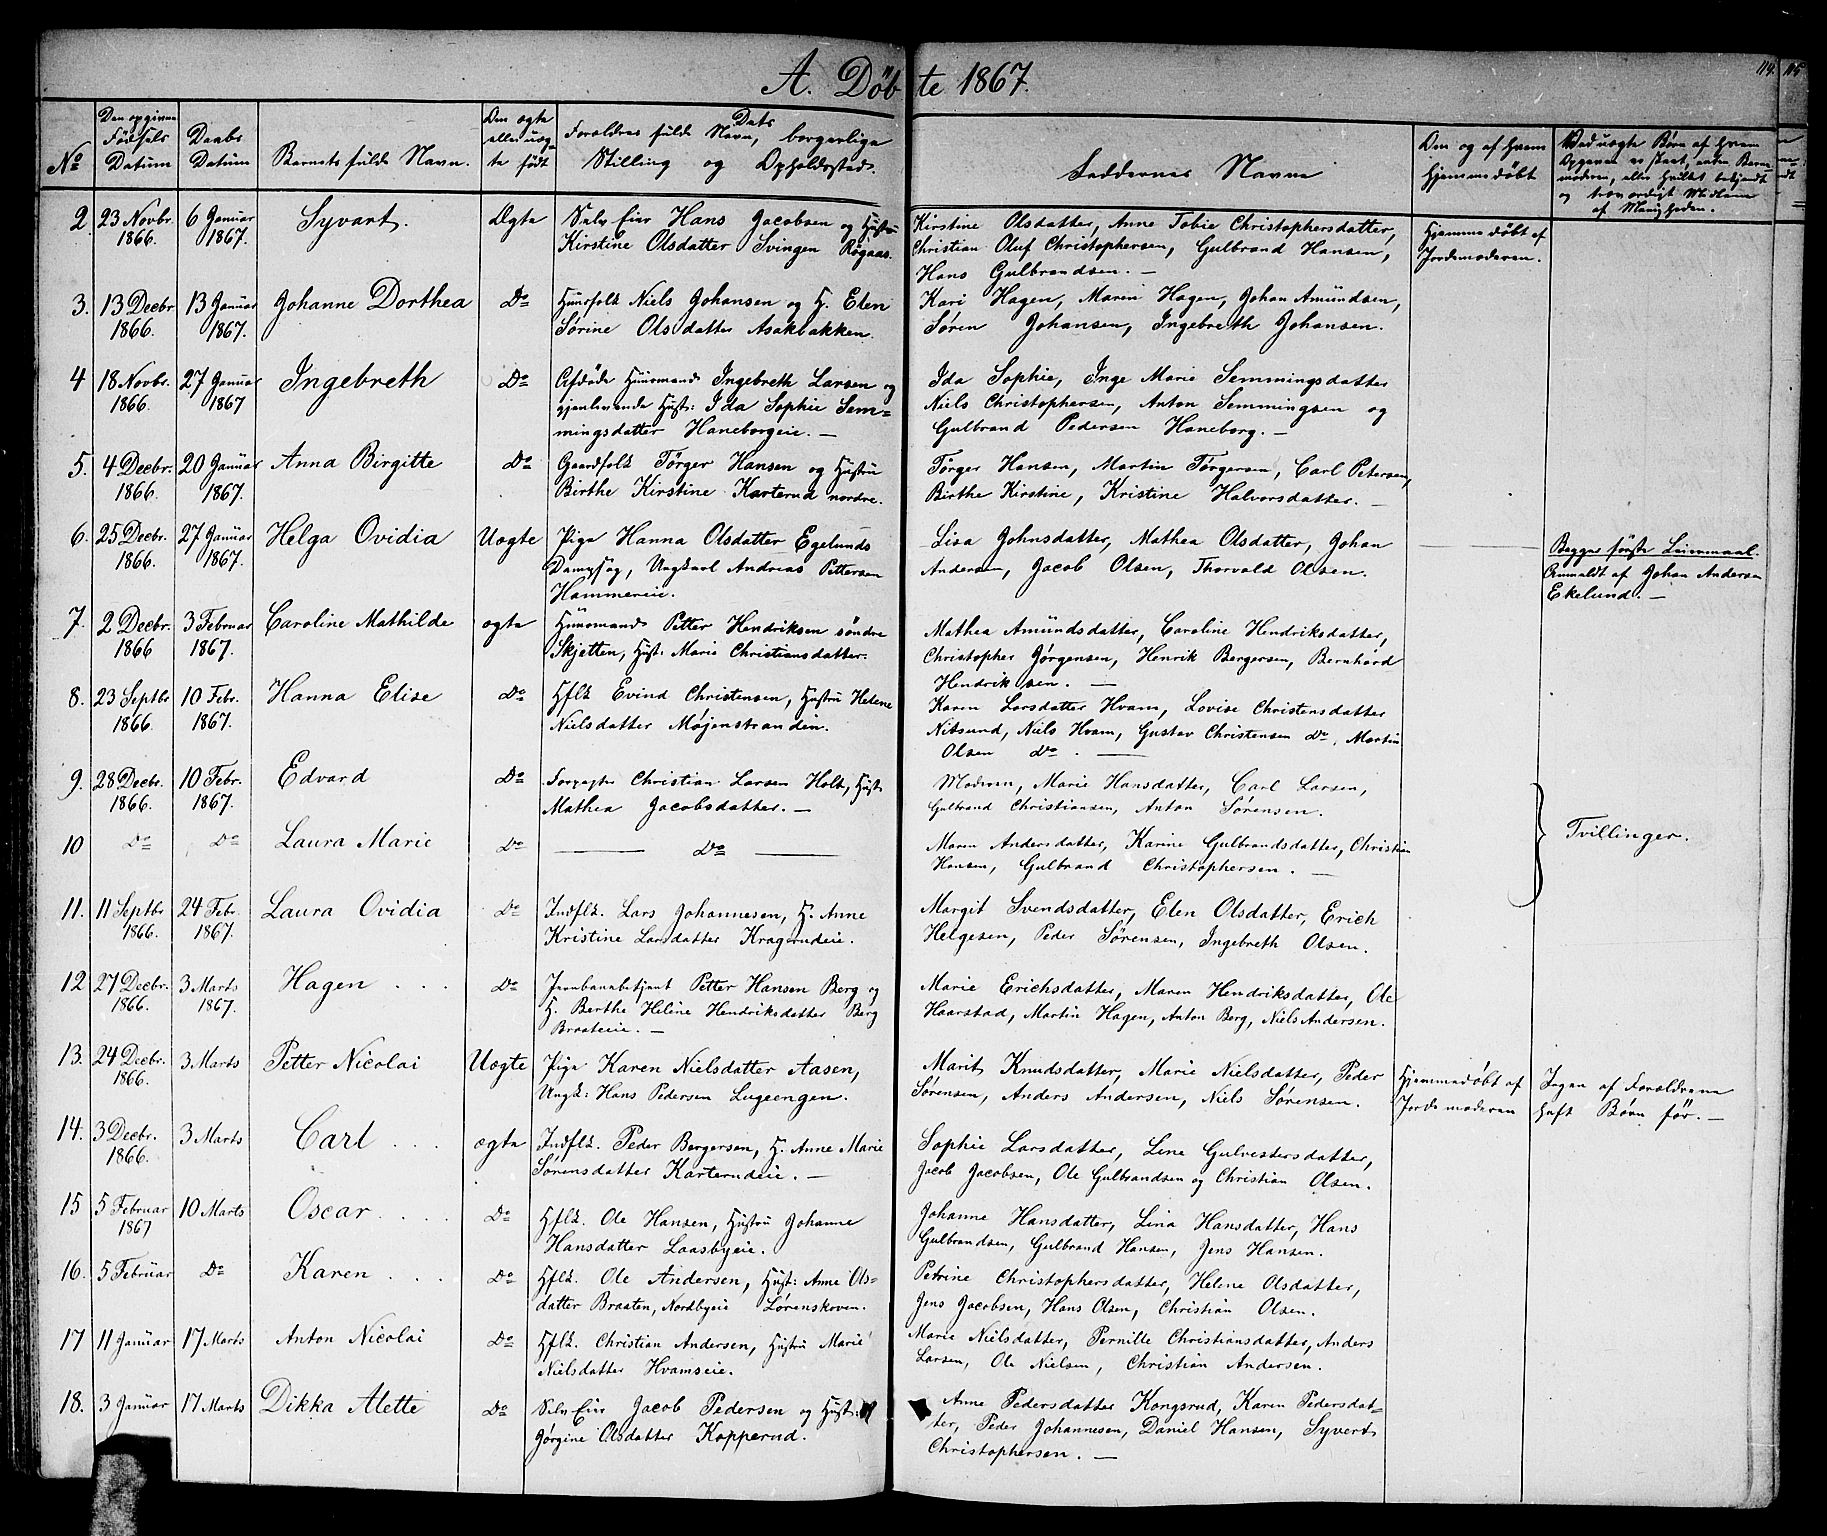 A. Døbte 1867.
114. 115
No
Den opgivne Fødsels Datum
Daabs Datum
Barnets fulde Navn.
Den ægte eller uægte født
Forældres fulde Navn, Dets borgerlige Stilling og Opholdssted.
Faddernes Navne
Om og af hvem hjemmedøbt
Ved uægte Børn af hvem Opgaven er skeet, uden Barnemoderen, eller hvilket bekjendt og troværdigt Vidne af Menigheden.
2. 23 Novbr. 1866. 6 Januar 1867. Syvart. Ægte Selv Eier Hans Jacobsen og Hustru
Kirstine Olsdatter Svingen Røgaas.
Kirstine Olsdatter, Anne Tobie Christophersdatter,
Christian Oluf Christophersen, Gulbrand Hansen,
Hans Gulbrandsen. —
Hjemmedøbt af
Jordemoderen.
3. 13 Decbr 1866. 13 Januar 1867. Johanne Dorthea Do Huusfolk Niels Johansen og H. Elen
Sørine Olsdatter Asakbakken.
Kari Hagen, Maren Hagen, Johan Amundsen,
Søren Johansen, Ingebreth Johansen.
4 18 Novbr. 1866. 27 Januar 1867 Ingebreth Do Afdøde Huusmand Ingebreth Larsen og
gjenlevende Hust: Ida Sophie Sem-
mingsdatter Haneborgeie. —
Ida Sophie, Inge Marie Semmingsdatter
Niels Christophersen, Anton Semmingsen og
Gulbrand Pedersen Haneborg. —
5. 4 Decbr. 1866. 20 Januar 1867. Anna Birgitte Do Gaardfolk Tørger Hansen og Hustru
Birthe Kirstine Karterud nordre.
Tørger Hansen, Martin Tørgersen, Carl Petersen,
Birthe Kirstine, Kristine Halvorsdatter.
6. 25 Decbr. 1866. 27 Januar 1867. Helga Ovidia Uægte Pige Hanna Olsdatter Egelunds
Dampsag, Ungkarl Andreas Pettersen
Hammereie.
Lisa Johnsdatter, Mathea Olsdatter, Johan
Andersen, Jacob Olsen, Thorvald Olsen.
Begges første Leiermaal.
Anmeldt af Johan Andersen
Ekelund. —
7. 2 Decbr. 1866 3 Februar 1867. Caroline Mathilde ægte Huusmand Petter Hendriksen søndre
Skjetten, Hust: Marie Christiansdatter.
Mathea Amundsdatter, Caroline Hendriksdatter,
Christopher Jørgensen, Henrik Bergersen, Bernhard
Hendriksen. —
8. 23 Septbr 1866. 10 Febr. 1867. Hanna Elise Do Hflk Evind Christensen, Hustru Helene
Nielsdatter Møjenstranden.
Karen Larsdatter Hvam, Lovise Christensdatter
Nitsund, Niels Hvam, Gustav Christensen Do, Martin
Olsen Do. —
9. 28 Decbr. 1866. 10 Febr. 1867. Edvard Do Forpagter Christian Larsen Holt, Hust
Mathea Jacobsdatter. —
Moderen, Marie Hansdatter, Carl Larsen,
Gulbrand Christiansen, Anton Sørensen.
Tvillinger.
10 Do Do Laura Marie Do — Do —
Maren Andersdatter, Karine Gulbrandsdatter, Christian
Hansen, Gulbrand Christophersen. —
11. 11 Septbr 1866. 24 Febr. 1867. Laura Ovidia Do Indflk. Lars Johannesen, H. Anne
Kristine Larsdatter Kragerudeie.
Margit Svendsdatter, Elen Olsdatter, Erich
Helgesen, Peder Sørensen, Ingebreth Olsen.
12 27 Decbr. 1866. 3 Marts 1867. Hagen Do Jernbanebetjent Petter Hansen Berg og
H. Berthe Heline Hendriksdatter Berg
Braateeie. —
Marie Erichsdatter, Maren Hendriksdatter, Ole
Haarstad, Martin Hagen, Anton Berg, Niels Andersen.
13. 24 Decbr. 1866. 3 Marts Petter Nicolai Uægte Pige Karen Nielsdatter Aasen,
Ungk: Hans Pedersen Lugeengen.
Marit Knudsdatter, Marie Nielsdatter, Peder
Sørensen, Anders Andersen, Niels Sørensen.
Hjemmedøbt af
Jordemoderen
Ingen af Forældrene
haft Børn før. —
14. 3 Decbr. 1866. 3 Marts Carl ægte Indflk. Peder Bergersen, H. Anne Marie
Sørensdatter Karterudeie. —
Sophie Larsdatter, Line Gulvestersdatter,
Jacob Jacobsen, Ole Gulbrandsen og Christian Olsen.
15 5 Februar 1867 10 Marts Oscar Do Hflk. Ole Hansen, Hustru Johanne
Hansdatter Laasbyeie.
Johanne Hansdatter, Lina Hansdatter, Hans
Gulbrandsen, Gulbrand Hansen, Jens Hansen.
16. 5 Februar Do Karen Do Hflk. Ole Andersen, Hust: Anne Ols-
datter Braaten, Nordbyeie Lørenskoven.
Petrine Christophersdatter, Helene Olsdatter,
Jens Jacobsen, Hans Olsen, Christian Olsen.
17 11 Januar 17 Marts Anton Nicolai Do Hflk. Christian Andersen, Hustru Marie
Nielsdatter Hvamseie.
Marie Nielsdatter, Pernille Christiansdatter, Anders
Larsen, Ole Nielsen, Christian Andersen.
18. 3 Januar 17 Marts Dikka Alette Do Selv Eier Jacob Pedersen og Hust:
Jørgine Olsdatter Kopperud.
Anne Pedersdatter Kongsrud, Karen Pedersdat-
ter, Peder Johannesen, Daniel Hansen, Syvert
Christophersen. —